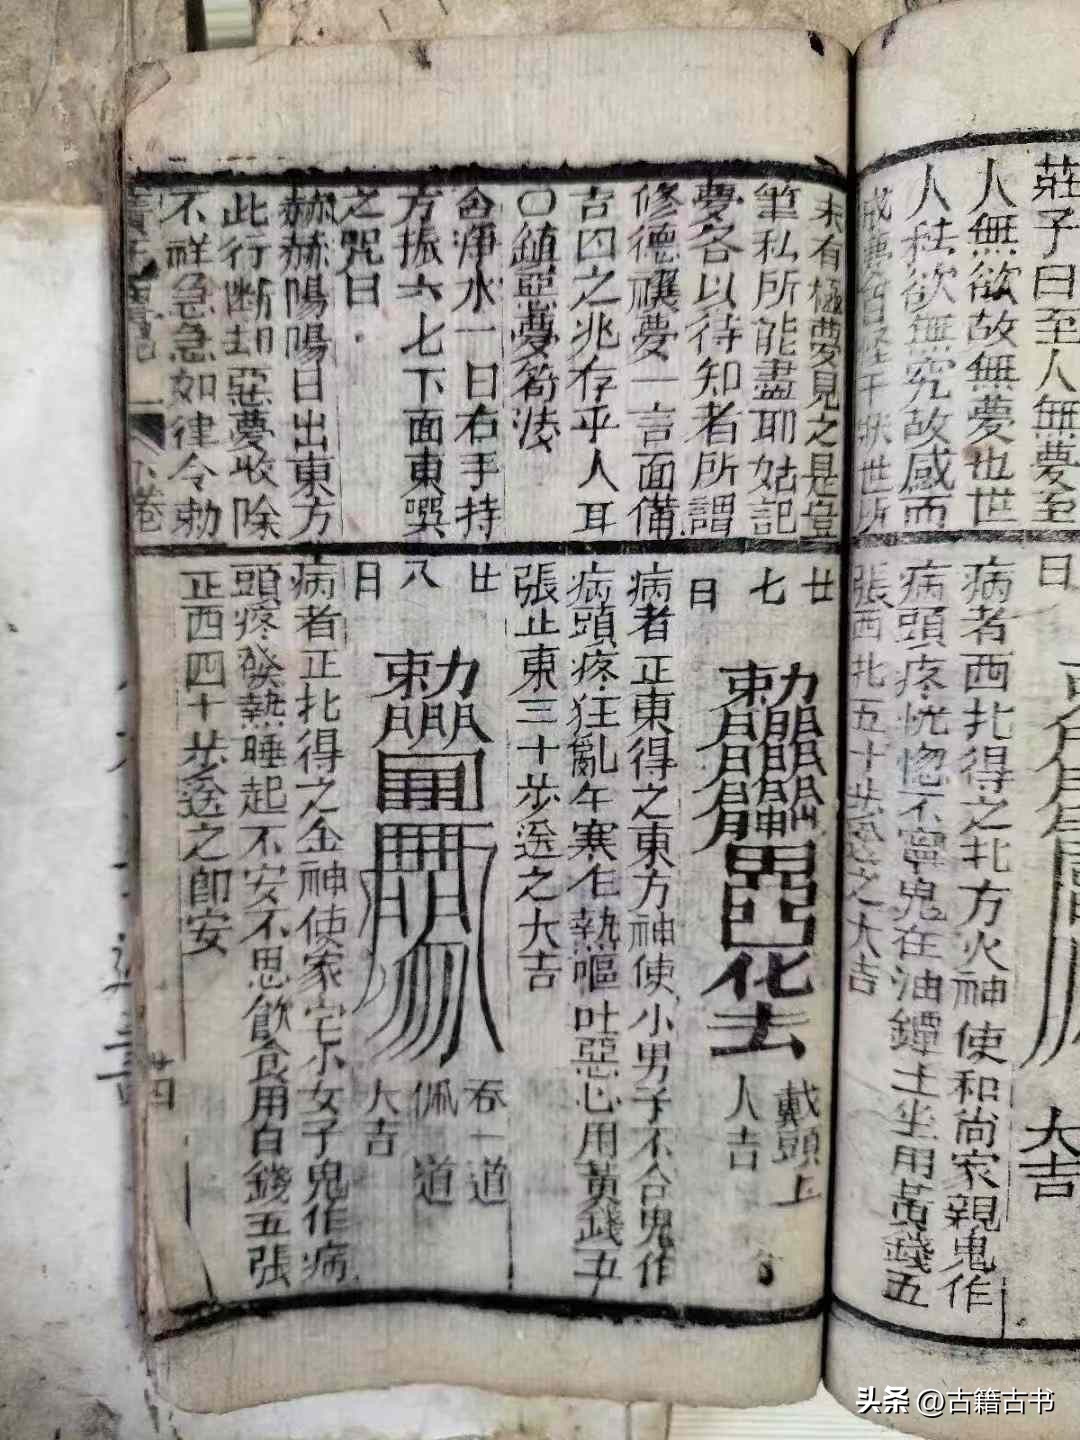 莊子曰至人無夢至
人無欲故無夢也世
人秪欲無究故感而
未有極夢見之是豈
筆私所能盡耶姑記
夢各以待知者所謂
修德禳夢一言面備
吉凶之兆存乎人耳
〇鎮惡夢符法
含淨水一口右手持
方振六七下面東噀
之咒曰
赫赫陽陽日出東方
此行斷却惡夢收除
不祥急急如律令勅
日
大吉
病者西北得之北方火神使和尚家親鬼作
病頭疼恍惚不寧鬼在油罈上坐用黃錢五
張西北五十步送之大吉
廿七日
戴頭上
人吉
病者正東得之東方神使小男子不合鬼作
病頭疼狂亂乍寒乍熱嘔吐惡心用黃錢五
張正東三十步送之大吉
廿八日
吞一道
佩道
大吉
病者正北得之金神使家宅小女子鬼作病
頭疼發熱睡起不安不思飲食用白錢五張
正西四十步送之即安
廿四
头条 @古籍古书